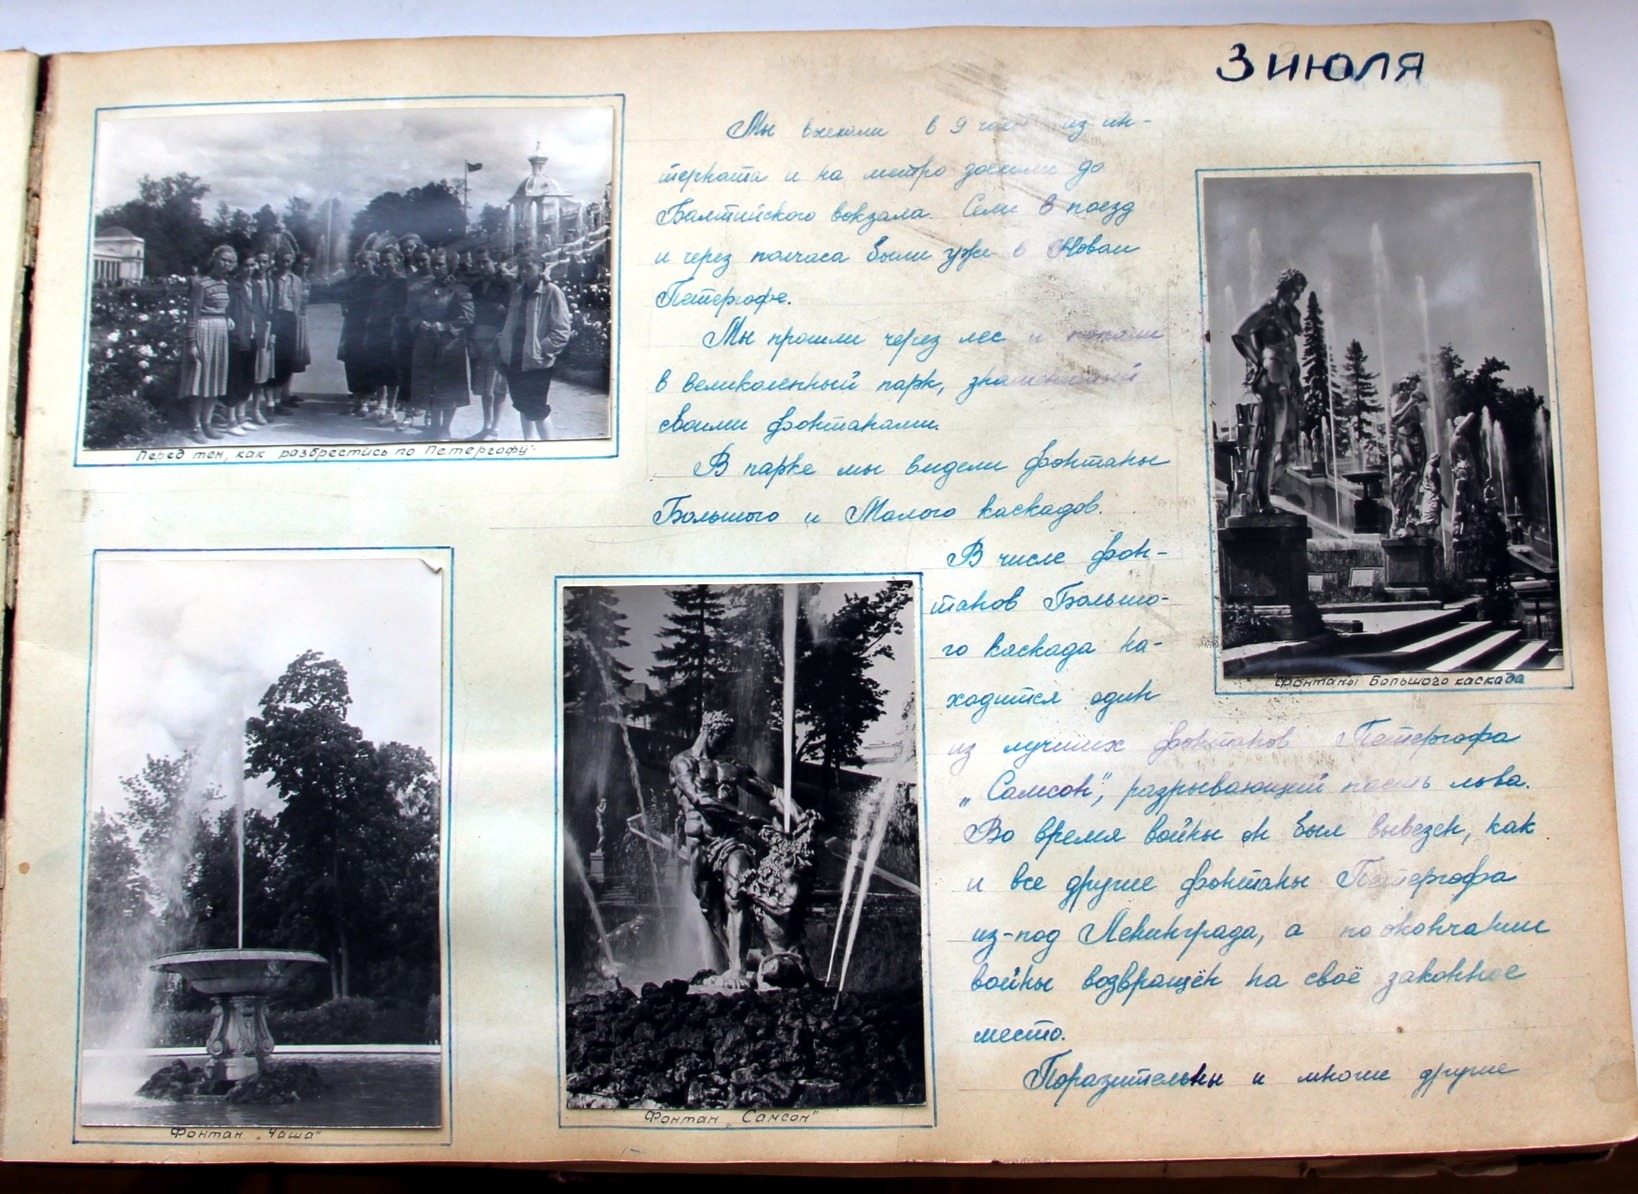 3 июля
Мы выехали в 9 часов из ин-
терната и на метро доехали до
Балтийского вокзала. Сели в поезд
и через полчаса были уже в Новом
Петергофе.
Мы прошли через лес и попали
в великоленный парк, знаменитый
своими фонтанами.
В парке мы видели фонтаны
Большого и Малого каскадов.
В числе фон-
танов Большо-
го каскада на-
ходится один
из лучших фонтанов Петергофа
„Самсон", разрывающий пасть льва.
Во время войны он был вывезен, как
и все другие фонтаны Петергофа
из-под Ленинграда, а по окончании
войны возвращён на своё законное
место.
Поразительны и многие другие
Перед тем, как разбрестись по Петергофу.
Фонтаны Большого каскада
Фонтан „Чаша"
Фонтан „Самсон"